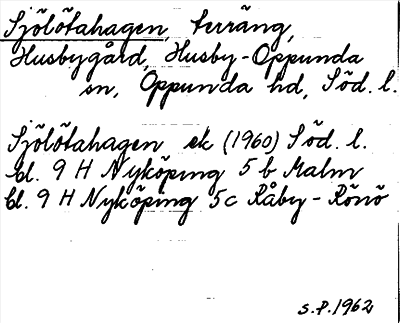 Sjölötahagen, terräng,
Husbygård, Husby-Oppunda
sn, Oppunda hd, Söd. l.
Sjölötahagen ek (1960) Söd. l.
bl. 9 H Nyköping 5 b Malm
bl. 9 H Nyköping 5c Råby-Rönö
S.P. 1962